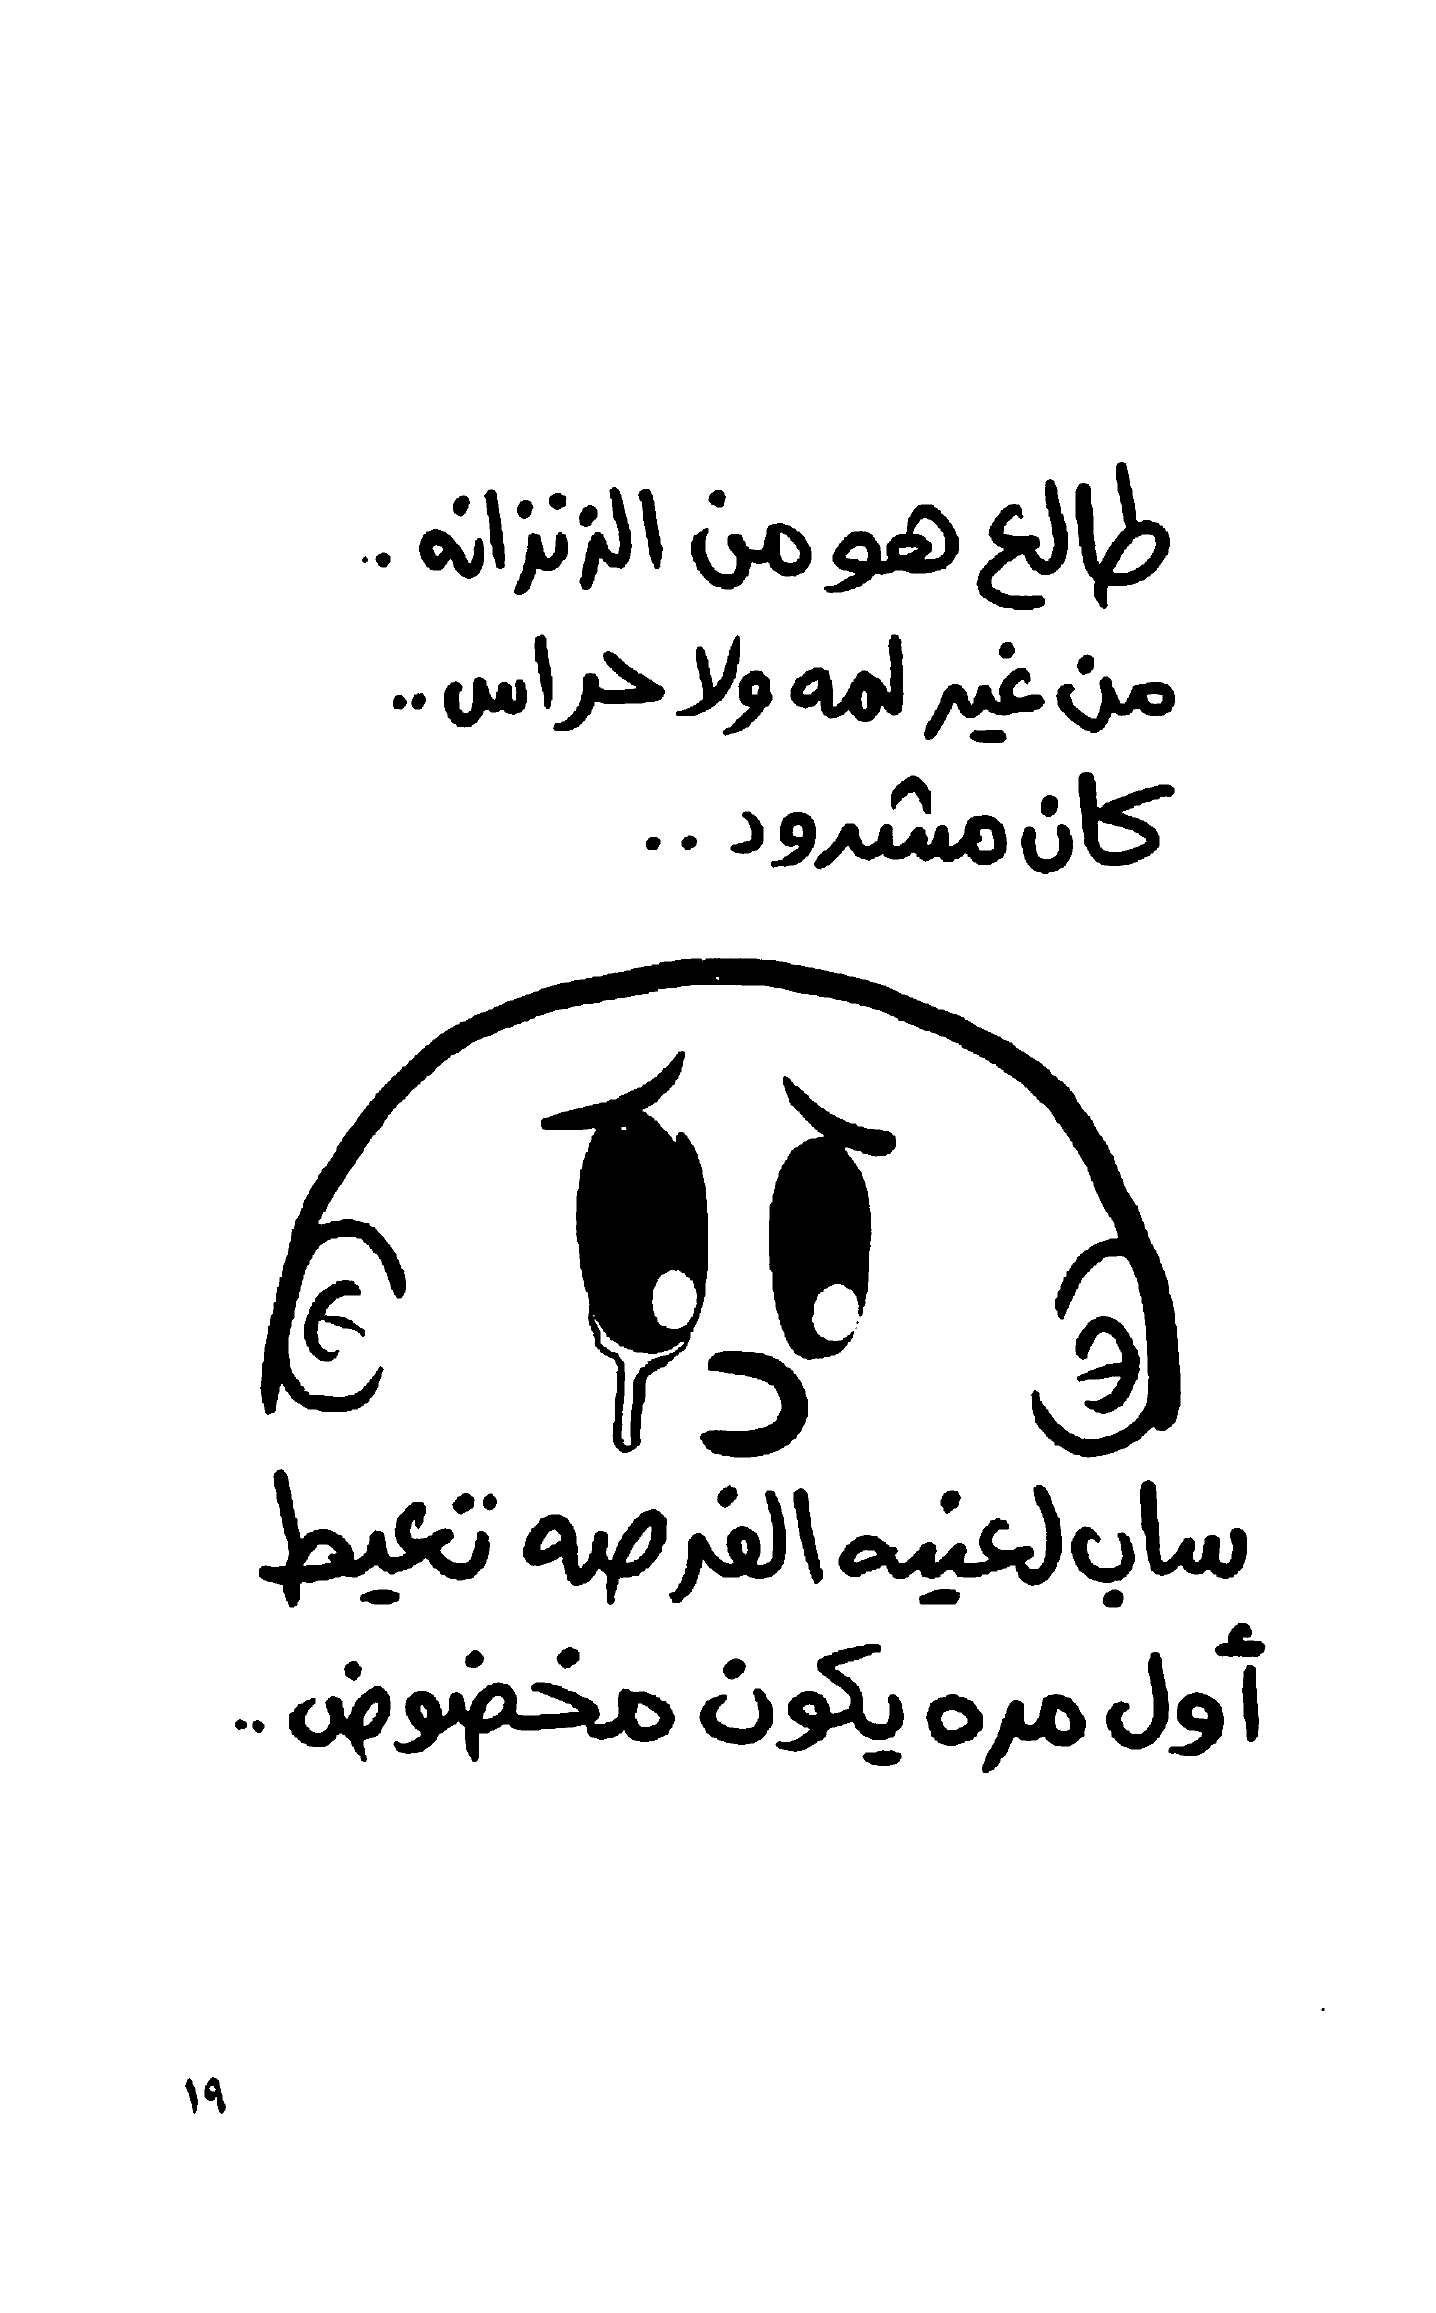 طالع هو من الزنزانه ..
من غير لمه ولا حراس ..
كان مشرود ..
ساب لعنيه الفرصه تعيط
أول مره يكون مخضوض ..
١٩